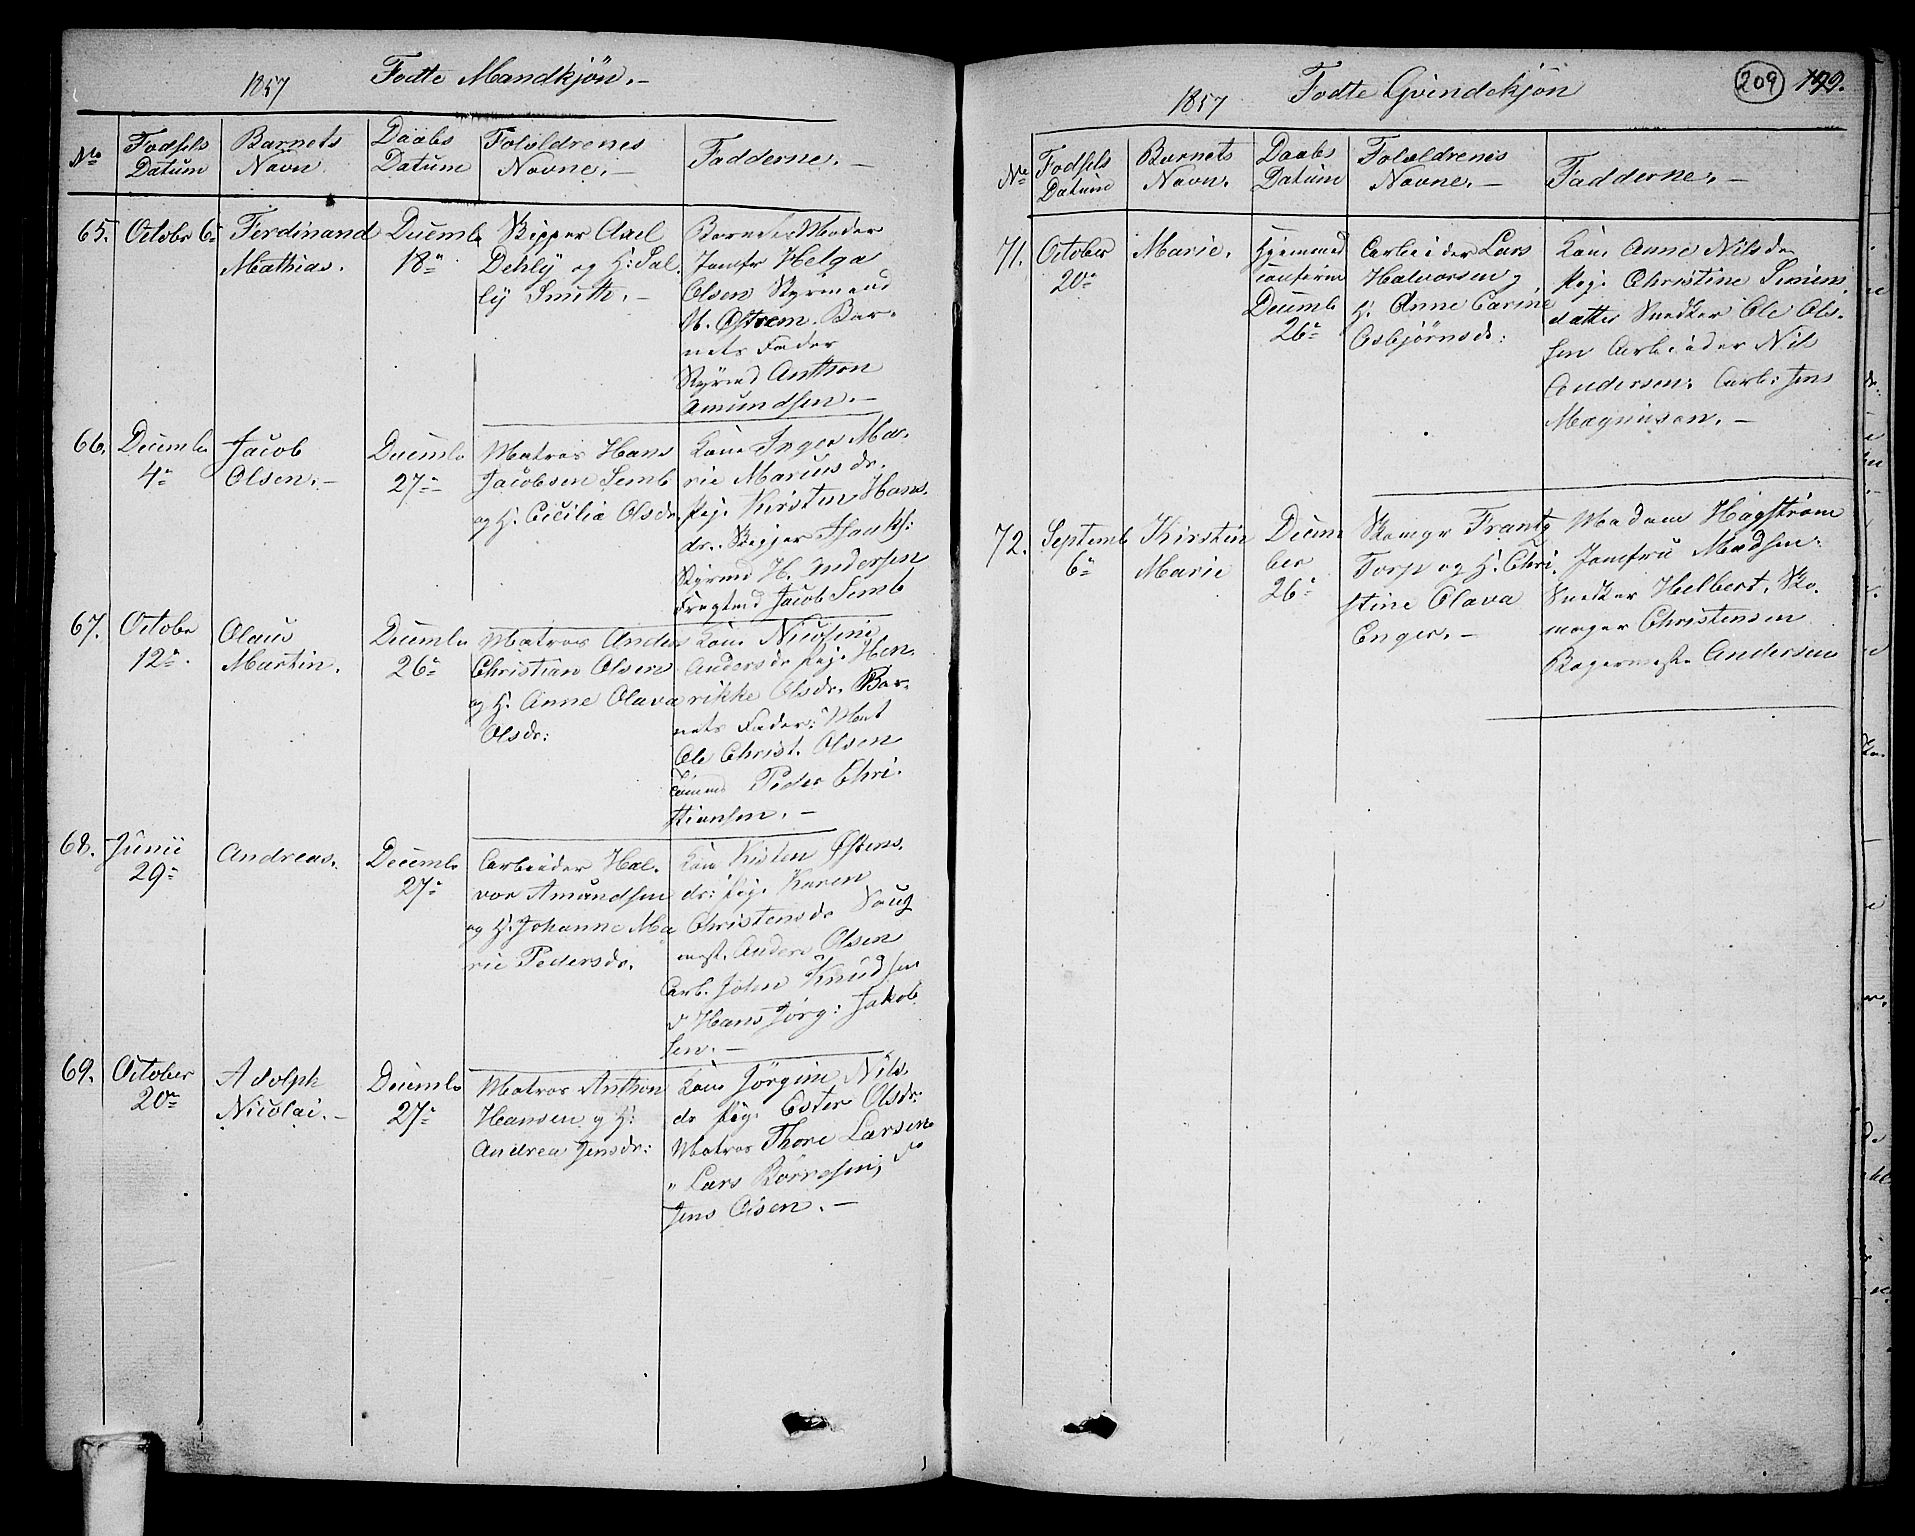 1857 Fødte Mandkjøn.-
No Fødsels Datum Barnets Navn. Daabs Datum Forældrenes Navne.- Fadderne.-
65. Octobr 6- Ferdinand Mathias. Decembr 18- Skipper Axel
Dehly og H:
ly Smith.-
Barnets Moder
Jomfr Helga
Olsen Styrmand
N. Ostrem. Bar-
nets Fader
Styrmd Anthon
Amundsen.-
66. Decembr 4- Jacob Olsen.- Decembr 27- Matros Hans
Jacobsen Semb
og H. Cicilia Olsdr.
Kone Inger Ma-
rie Mariusdr.
Pig. Kirsten Hans-
dr. Skipper
Styrmd H. Andersen
Jacob Semb
67. Octobr 12- Olaus Martin. Decembr 26- Matros Anders
Christian Olsen
og H. Anne Olava
Olsdr:
Kone Nicoline
Andersdr Pig. Hen-
rikke Olsdr. Bar-
nets Fader: Mat
Ole Christ. Olsen
Peder Chri-
stiansen.-
68. Junii 29- Andreas. Decembr 27- Arbeider Hal-
vor Amundsen
og H. Johanne Ma
rie Pedersdr.
Kone Kisten Østens-
dr: Pig. Karen
Christensdr Saug
mest. Anders Olsen
Arb. John Knudsen
d Hans Jørg: Jakob
sen.-
69. October 20- Adolph Nicolai.- Decembr 27- Matros Anthon
Hansen og H:
Andrea Jensdr:
Kone Jørgine Nils
dr Pig. Ester Olsdr:
Matros Thore Larsen
" Lars do
Jens Olsen.-
209 199.
1857 Fødte Qvindekjøn
No Fødsels Datum Barnets Navn. Daabs Datum Forældrenes Navne.- Fadderne.-
71. October 20- Marie. Hjemmed
Decembr
26-
Arbeider Lars
Halvorsen og
H. Anne Carine
Asbjørnsdr:
Kone Anne Nilsdr
Pig. Christine Simens
datter Snedker Ole Ols-
sen Arbeider Nils
Andersen: Arb: Jens
Magnusen.-
72. Septembr 6- Kirstin Marie Decem
ber
26-
Skomgr Frantz
Torp og H. Chri-
stine Olava
Enger.-
Madam Hagstrøm
Jomfru Madsen:
Snedker Helbert, Sko-
mager Christensen
Bagermestr Andersen